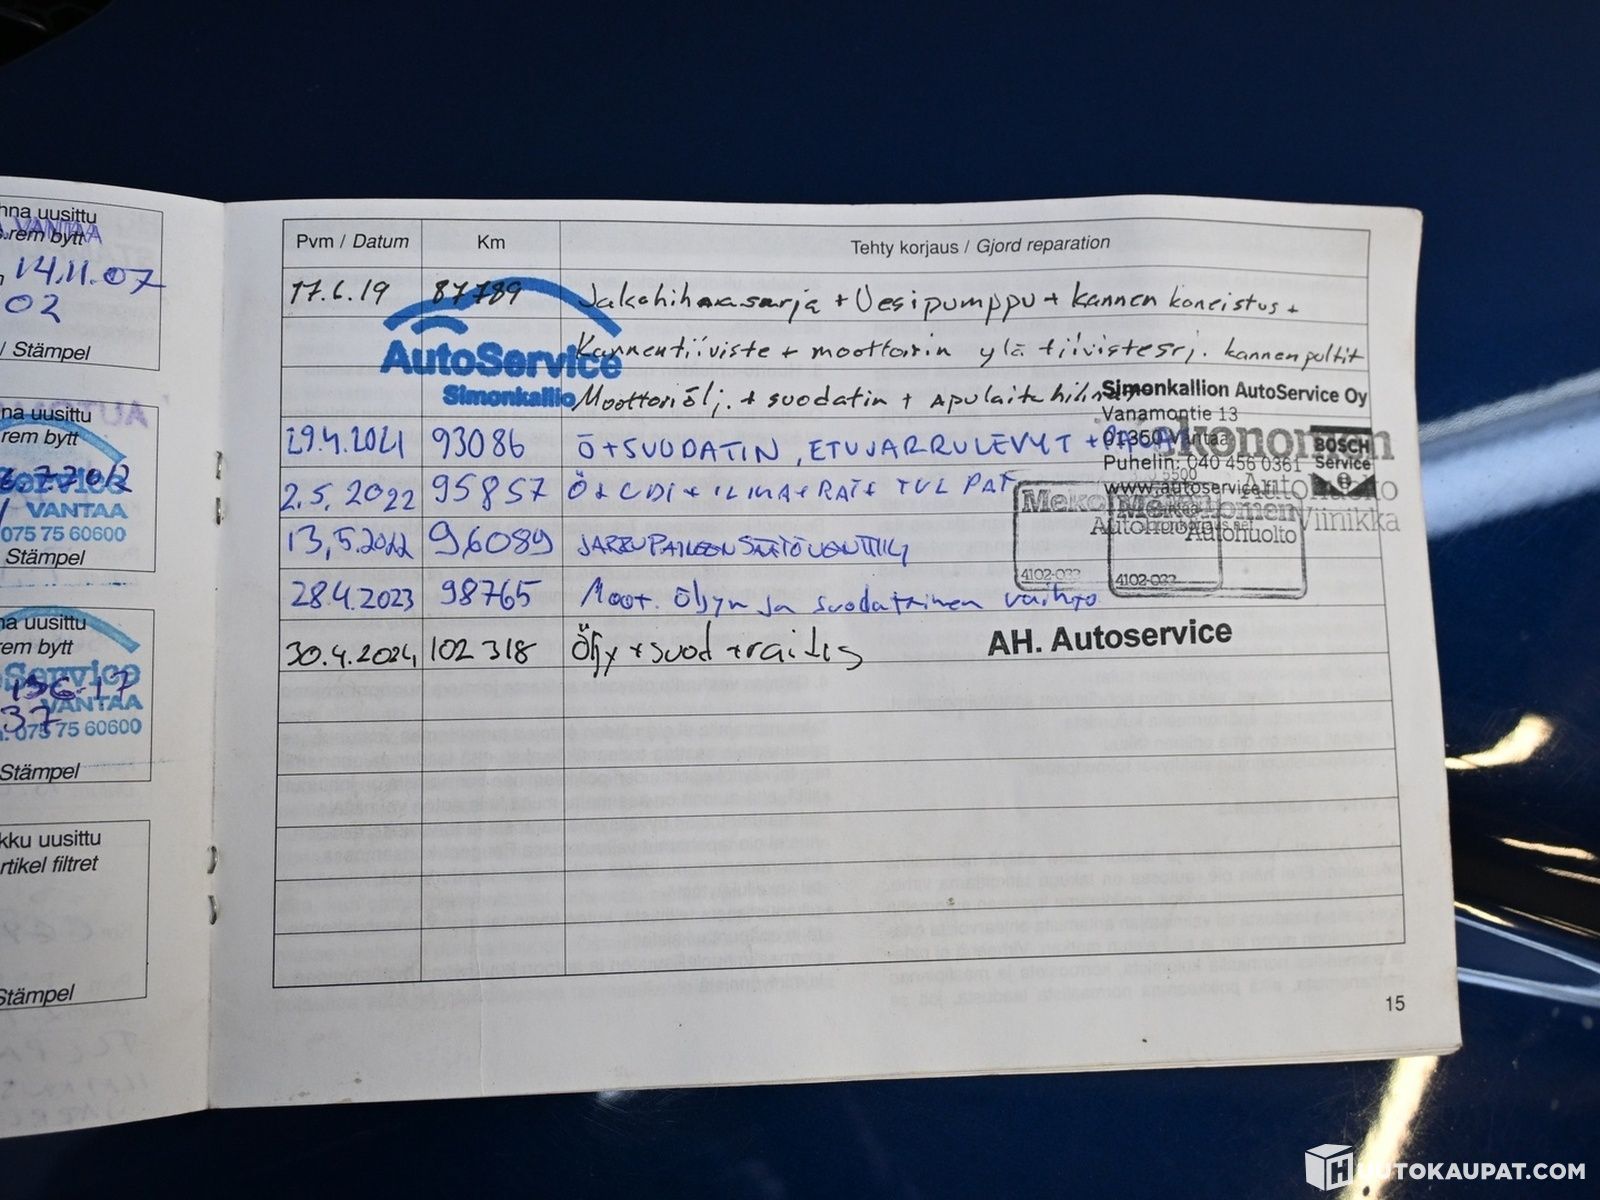 hna uusittu
VANTAA
rem bytt
14.11.07
02
/ Stämpel
na uusittu
rem bytt
VANTAA
075 75 60600
Stämpel
na uusittu
rem bytt
VANTAA
075 75 60600
Stämpel
kku uusittu
rtikel filtret
Stämpel
Pvm / Datum Km Tehty korjaus / Gjord reparation
17.6.19 87789 Jakohihnasarja + Vesipumppu + kannen koneistus +
AutoService
Simonkallio
Kannentiiviste + moottorin ylä tiivistesrj. kannenpultit
Moottoriölj. + suodatin + Apulaitehihna
Simonkallion AutoService Oy
Vanamontie 13
01350 Vantaa
Puhelin: 040 456 0361
www.autoservice.fi
BOSCH
Service
29.4.2021 93086 Ö + SUODATIN, ETUJARRULEVYT +
2.5.2022 95857 Ö + + ILMA + RAI +
Viinikka
Mekonomen
Autohuolto
4102-033
4102-033
13.5.2022 96089
28.4.2023 98765 Moot. öljyn ja suodattimen vaihto
30.4.2024 102 318 Öljy + suod + raitis
AH. Autoservice
15
HUUTOKAUPAT.COM